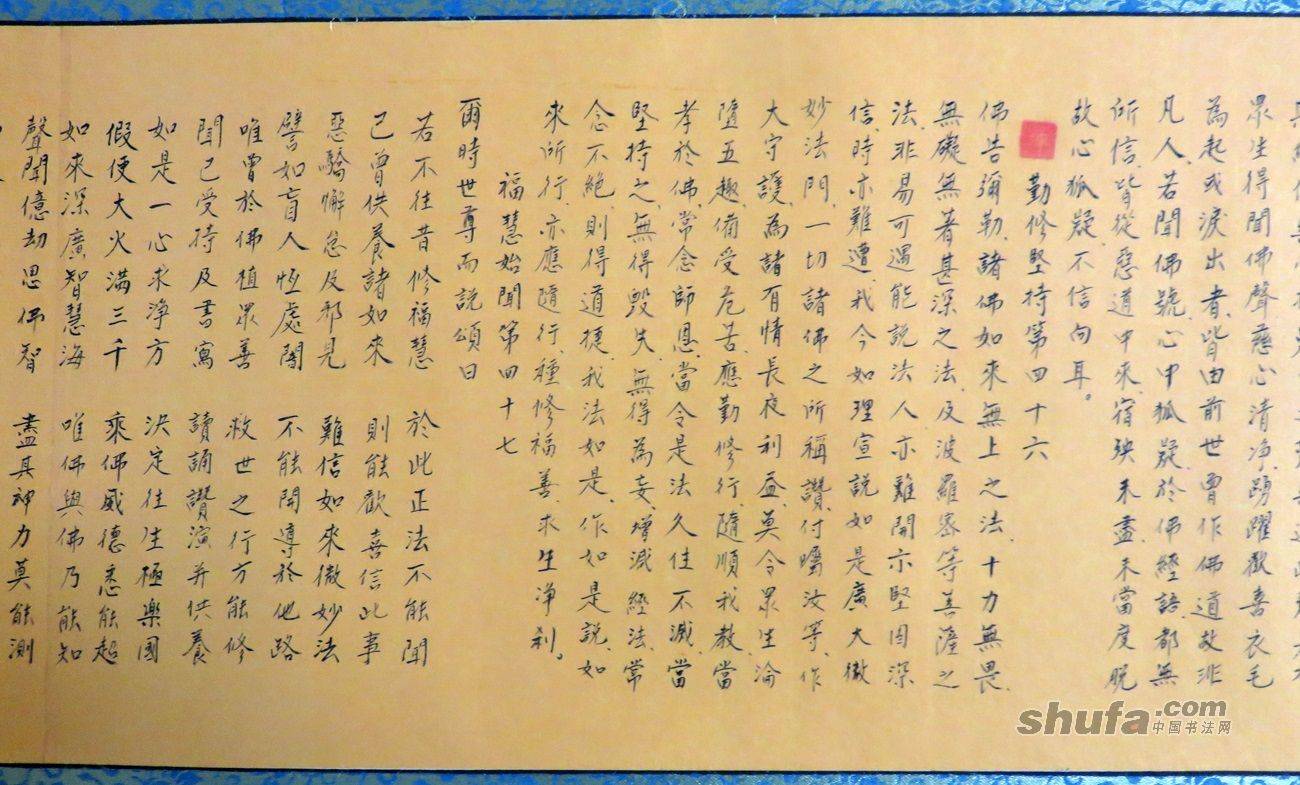 眾生得聞佛聲、慈心清淨、踴躍歡喜衣毛
為起或淚出者、皆由前世曾作佛道故非
凡人、若聞佛號心中狐疑、於佛經語、都無
所信、皆從惡道中來、宿殃未盡、未當度脫
故心狐疑、不信向耳。
勤修堅持第四十六
佛告彌勒、諸佛如來無上之法、十力無畏、
無礙無著甚深之法、及波羅密等菩薩之
法、非易可遇能說法人亦難開示堅固深
信、時亦難遭、我今如理宣說如是廣大微
妙法門、一切諸佛之所稱讚、付囑汝等、作
大守護、為諸有情長夜利益、莫令眾生淪
墮五趣、備受危苦、應勤修行、隨順我教、當
孝於佛、常念師恩、當令是法久住不滅、當
堅持之、無得毀失、無得為妄、增減經法、常
念不絕、則得道捷、我法如是、作如是說、如
來所行、亦應隨行、種修福善、求生淨剎。
福慧始聞第四十七
爾時世尊而說頌曰
若不往昔修福慧 於此正法不能聞
已曾供養諸如來 則能歡喜信此事
惡驕懈怠及邪見 難信如來微妙法
譬如盲人恆處闇 不能開導於他路
唯曾於佛植眾善 救世之行方能修
聞已受持及書寫 讀誦讚演并供養
如是一心求淨方 決定往生極樂國
假使大火滿三千 乘佛威德悉能超
如來深廣智慧海 唯佛與佛乃能知
聲聞億劫思佛智 盡其神力莫能測
shufa.com
中国书法网